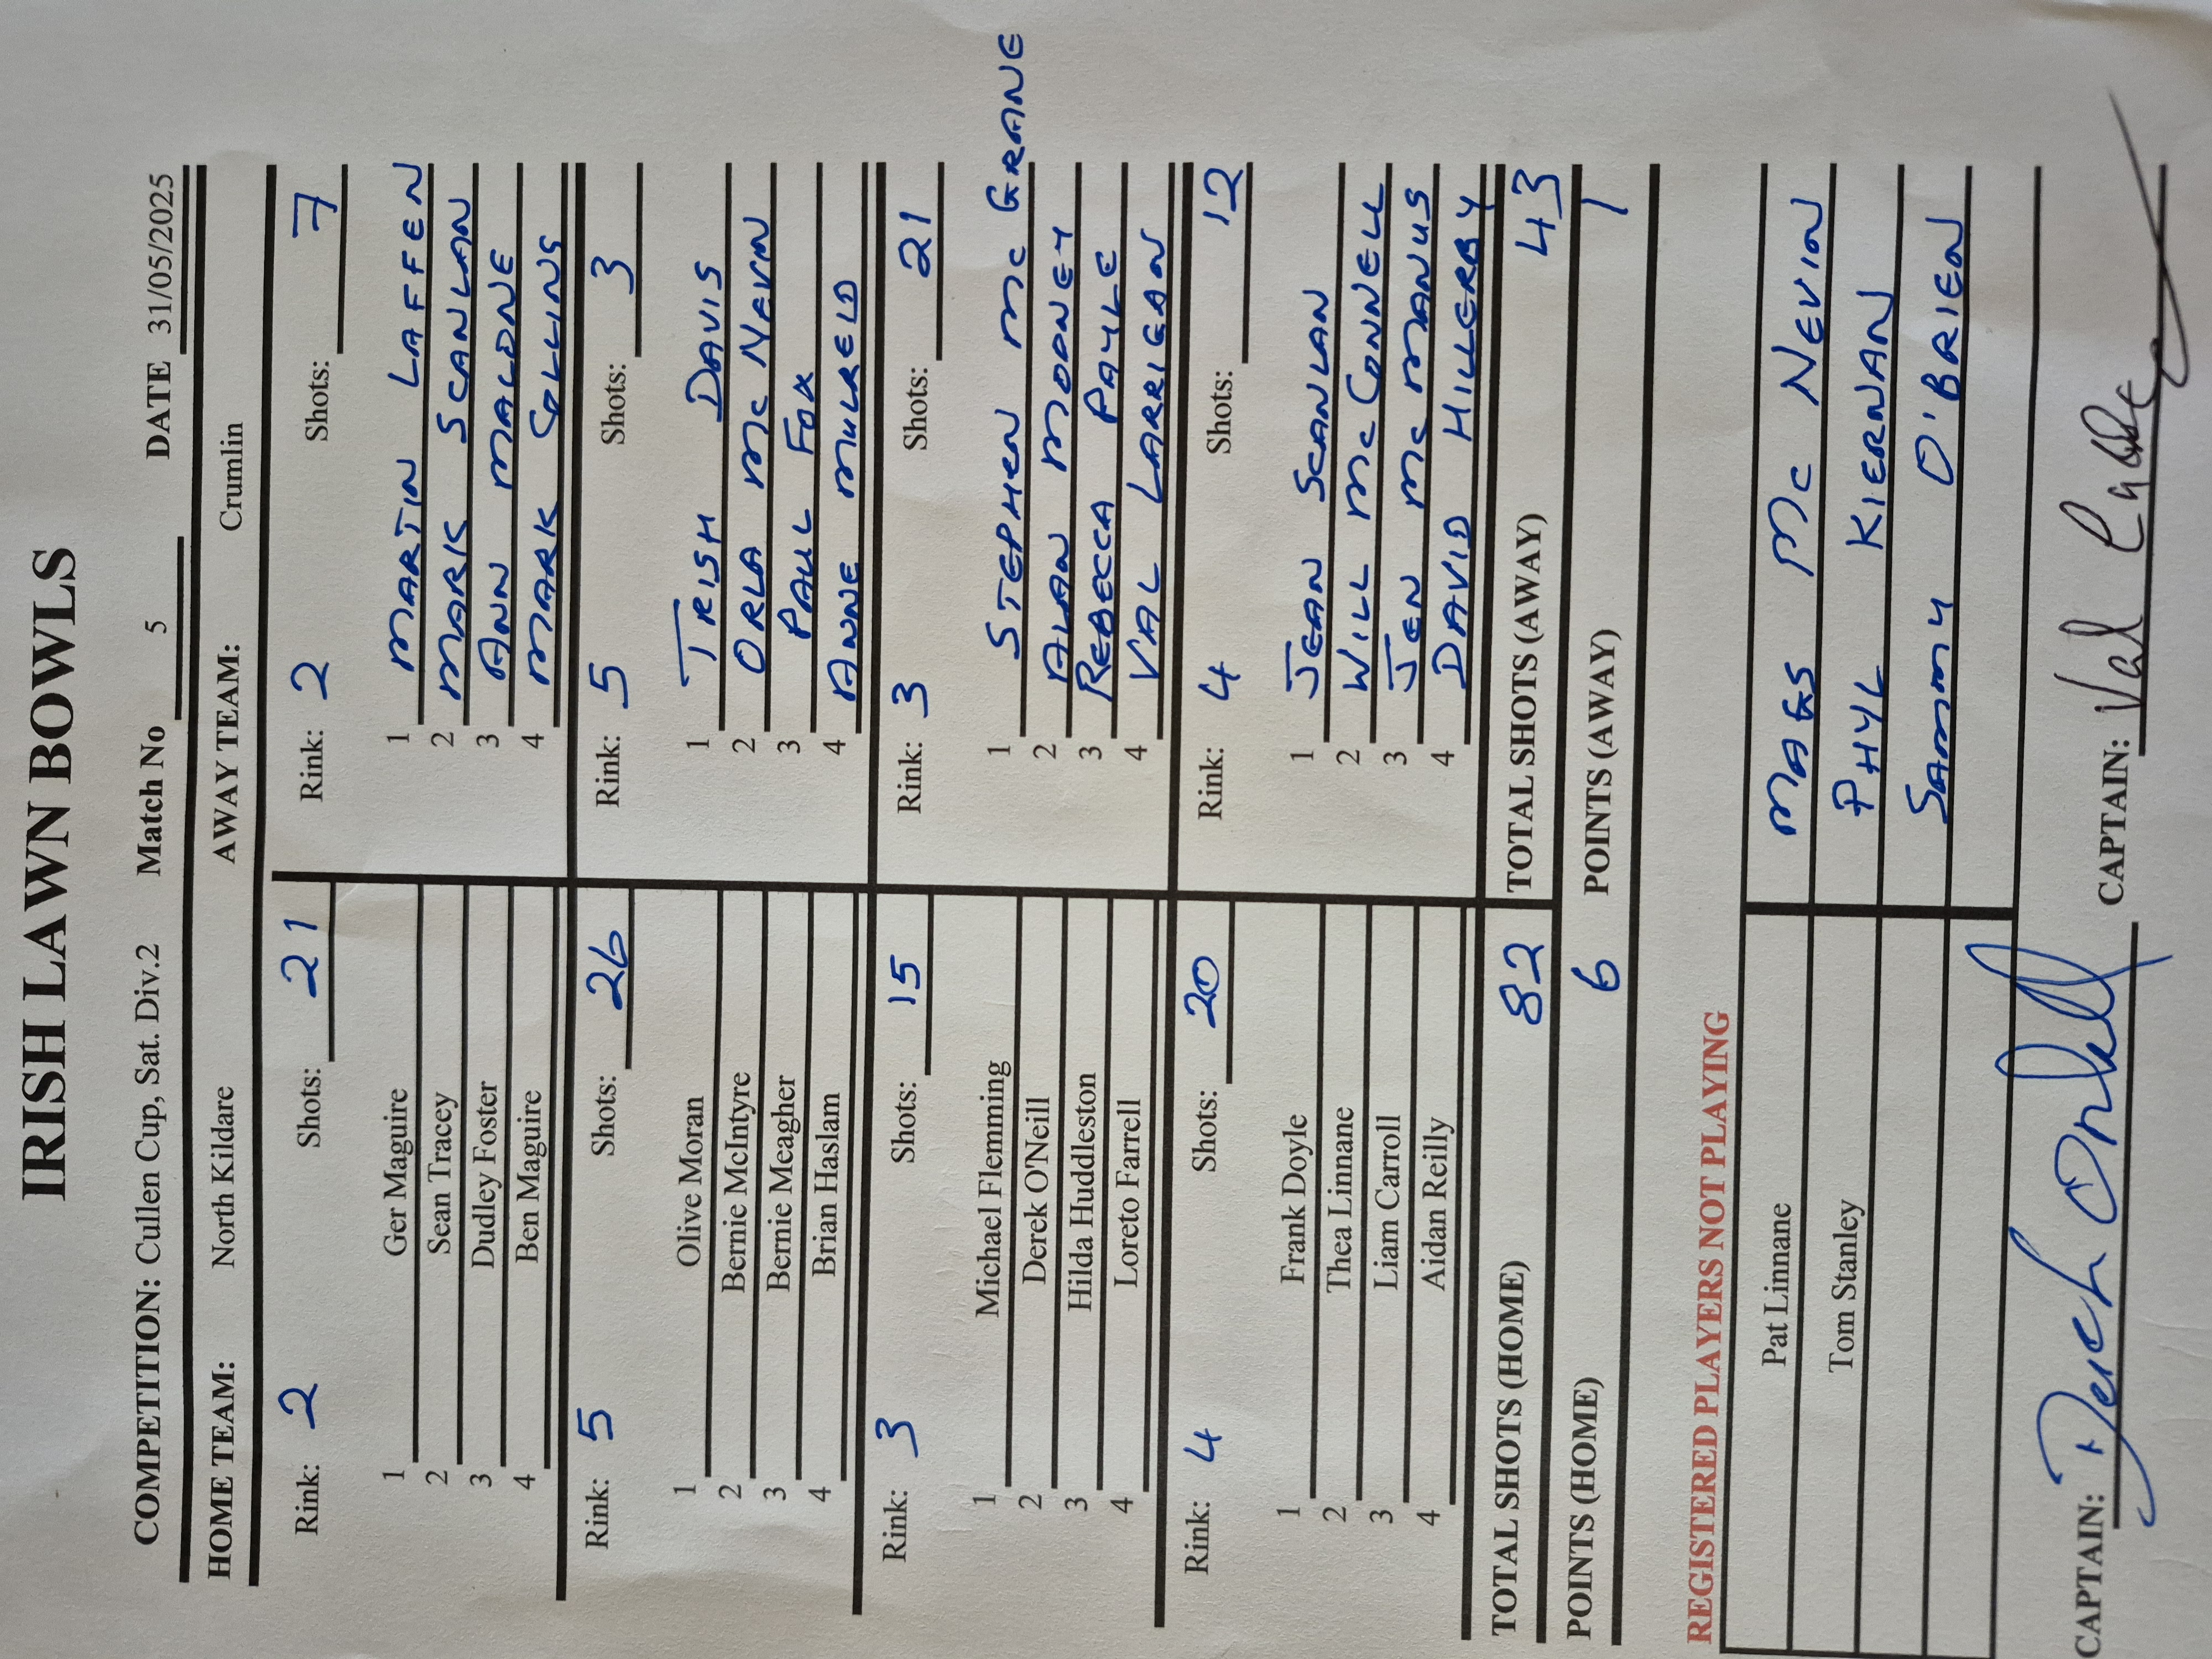 IRISH LAWN BOWLS
COMPETITION: Cullen Cup, Sat. Div.2 Match No 5 DATE 31/05/2025
HOME TEAM: North Kildare AWAY TEAM: Crumlin
Rink: 2 Shots: 21 Rink: 2 Shots: 7
1 Ger Maguire 1 MARTIN LAFFEN
2 Sean Tracey 2 MARK SCANLAN
3 Dudley Foster 3 ANN MALONE
4 Ben Maguire 4 MARK COLLINS
Rink: 5 Shots: 26 Rink: 5 Shots: 3
1 Olive Moran 1 TRISH DAVIS
2 Bernie McIntyre 2 ORLA Mc NEVIN
3 Bernie Meagher 3 PAUL FOX
4 Brian Haslam 4 ANNE MULREID
Rink: 3 Shots: 15 Rink: 3 Shots: 21
1 Michael Flemming 1 STEPHEN Mc GRANE
2 Derek O'Neill 2 ALAN MOONEY
3 Hilda Huddleston 3 REBECCA PAYLE
4 Loreto Farrell 4 VAL LARRIGAN
Rink: 4 Shots: 20 Rink: 4 Shots: 12
1 Frank Doyle 1 JEAN SCANLAN
2 Thea Linnane 2 WILL Mc CONNELL
3 Liam Carroll 3 JEN Mc MANUS
4 Aidan Reilly 4 DAVID HILLERBY
TOTAL SHOTS (HOME) 82 TOTAL SHOTS (AWAY) 43
POINTS (HOME) 6 POINTS (AWAY) 1
REGISTERED PLAYERS NOT PLAYING
Pat Linnane MAGS Mc NEVIN
Tom Stanley PHYL KIERNAN
SAMMY O'BRIEN
CAPTAIN: CAPTAIN: Val